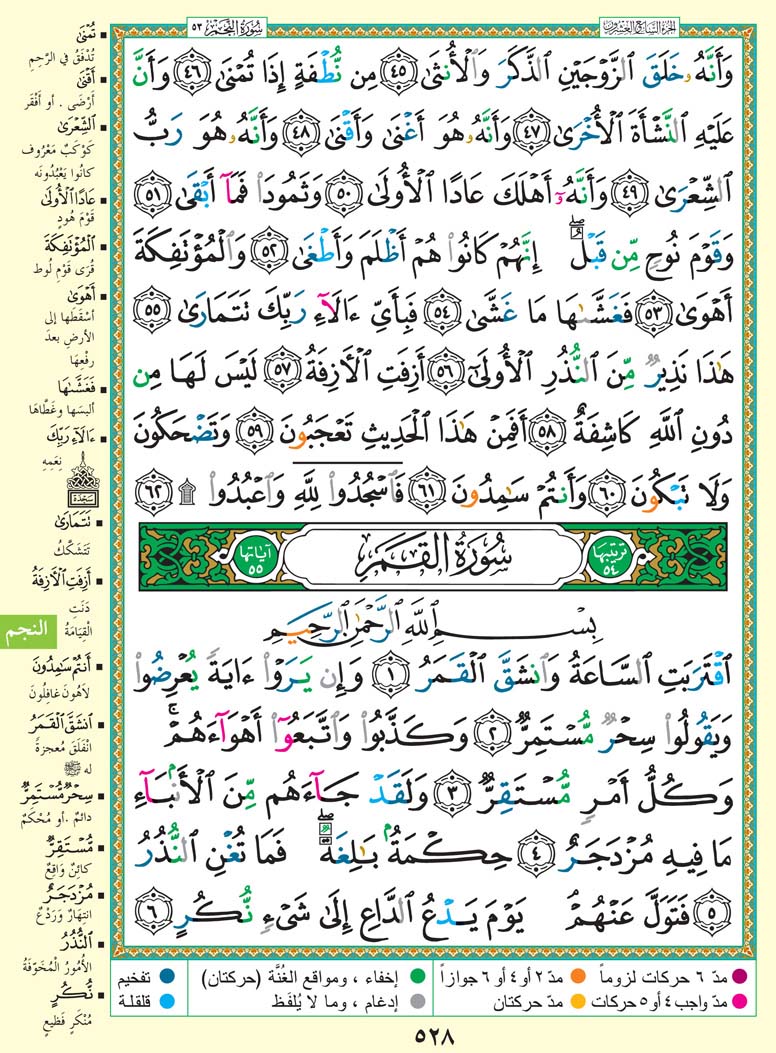 الجزء السابع والعشرون
سورة النجم ٥٣
وَأَنَّهُۥ خَلَقَ ٱلزَّوۡجَيۡنِ ٱلذَّكَرَ وَٱلۡأُنثَىٰ ٤٥ مِن نُّطۡفَةٍ إِذَا تُمۡنَىٰ ٤٦ وَأَنَّ
عَلَيۡهِ ٱلنَّشۡأَةَ ٱلۡأُخۡرَىٰ ٤٧ وَأَنَّهُۥ هُوَ أَغۡنَىٰ وَأَقۡنَىٰ ٤٨ وَأَنَّهُۥ هُوَ رَبُّ
ٱلشِّعۡرَىٰ ٤٩ وَأَنَّهُۥٓ أَهۡلَكَ عَادًا ٱلۡأُولَىٰ ٥٠ وَثَمُودَاْ فَمَآ أَبۡقَىٰ ٥١
وَقَوۡمَ نُوحٖ مِّن قَبۡلُۖ إِنَّهُمۡ كَانُواْ هُمۡ أَظۡلَمَ وَأَطۡغَىٰ ٥٢ وَٱلۡمُؤۡتَفِكَةَ
أَهۡوَىٰ ٥٣ فَغَشَّىٰهَا مَا غَشَّىٰ ٥٤ فَبِأَيِّ ءَالَآءِ رَبِّكَ تَتَمَارَىٰ ٥٥
هَٰذَا نَذِيرٞ مِّنَ ٱلنُّذُرِ ٱلۡأُولَىٰٓ ٥٦ أَزِفَتِ ٱلۡأٓزِفَةُ ٥٧ لَيۡسَ لَهَا مِن
دُونِ ٱللَّهِ كَاشِفَةٌ ٥٨ أَفَمِنۡ هَٰذَا ٱلۡحَدِيثِ تَعۡجَبُونَ ٥٩ وَتَضۡحَكُونَ
وَلَا تَبۡكُونَ ٦٠ وَأَنتُمۡ سَٰمِدُونَ ٦١ فَٱسۡجُدُواْ لِلَّهِ وَٱعۡبُدُواْ ۩ ٦٢
ترتيبها ٥٤ سُورَةُ القَمَرِ آياتها ٥٥
بِسۡمِ ٱللَّهِ ٱلرَّحۡمَٰنِ ٱلرَّحِيمِ
ٱقۡتَرَبَتِ ٱلسَّاعَةُ وَٱنشَقَّ ٱلۡقَمَرُ ١ وَإِن يَرَوۡاْ ءَايَةٗ يُعۡرِضُواْ
وَيَقُولُواْ سِحۡرٞ مُّسۡتَمِرّٞ ٢ وَكَذَّبُواْ وَٱتَّبَعُوٓاْ أَهۡوَآءَهُمۡۚ
وَكُلُّ أَمۡرٖ مُّسۡتَقِرّٞ ٣ وَلَقَدۡ جَآءَهُم مِّنَ ٱلۡأَنۢبَآءِ
مَا فِيهِ مُزۡدَجَرٌ ٤ حِكۡمَةُۢ بَٰلِغَةٞۖ فَمَا تُغۡنِ ٱلنُّذُرُ
٥ فَتَوَلَّ عَنۡهُمۡۘ يَوۡمَ يَدۡعُ ٱلدَّاعِ إِلَىٰ شَيۡءٖ نُّكُرٍ ٦
تُمۡنَىٰ
تُدْفَقُ في الرَّحِمِ
أَقۡنَىٰ
أَرْضَى . أو أفْقَر
ٱلشِّعۡرَىٰ
كَوْكَبٌ مَعْرُوف
كانُوا يَعْبُدُونَه
عَادًا ٱلۡأُولَىٰ
قَوْمَ هُودٍ
ٱلۡمُؤۡتَفِكَةَ
قُرَى قَوْمِ لُوط
أَهۡوَىٰ
أسْقَطَها إلى
الأرضِ بعدَ
رفْعِهَا
فَغَشَّىٰهَا
ألبَسَها وغَطَّاهَا
ءَالَآءِ رَبِّكَ
نِعَمِهِ
سَجْدَة
تَتَمَارَىٰ
تَتَشَكَّكُ
أَزِفَتِ ٱلۡأٓزِفَةُ
دَنَتِ
الْقِيَامَةُ
النجم
أَنتُمۡ سَٰمِدُونَ
لاهُونَ غافِلُونَ
ٱنشَقَّ ٱلۡقَمَرُ
انْفَلَقَ مُعجزةً
له ﷺ
سِحۡرٞ مُّسۡتَمِرّٞ
دائمٌ .أو مُحْكَمٌ
مُّسۡتَقِرّٞ
كائنٌ وَاقِعٌ
مُزۡدَجَرٌ
انتِهارٌ وَرَدْعٌ
ٱلنُّذُرُ
الأُمورُ المُخَوِّفَةُ
نُّكُرٍ
مُنْكَرٍ فَظيعٍ
مدّ ٦ حركات لزوماً مدّ ٢ أو ٤ أو ٦ جوازاً إخفاء ، ومواقع الغُنَّة (حركتان) تفخيم
مدّ واجب ٤ أو ٥ حركات مدّ حركتان إدغام ، وما لا يُلفَظ قلقلة
٥٢٨